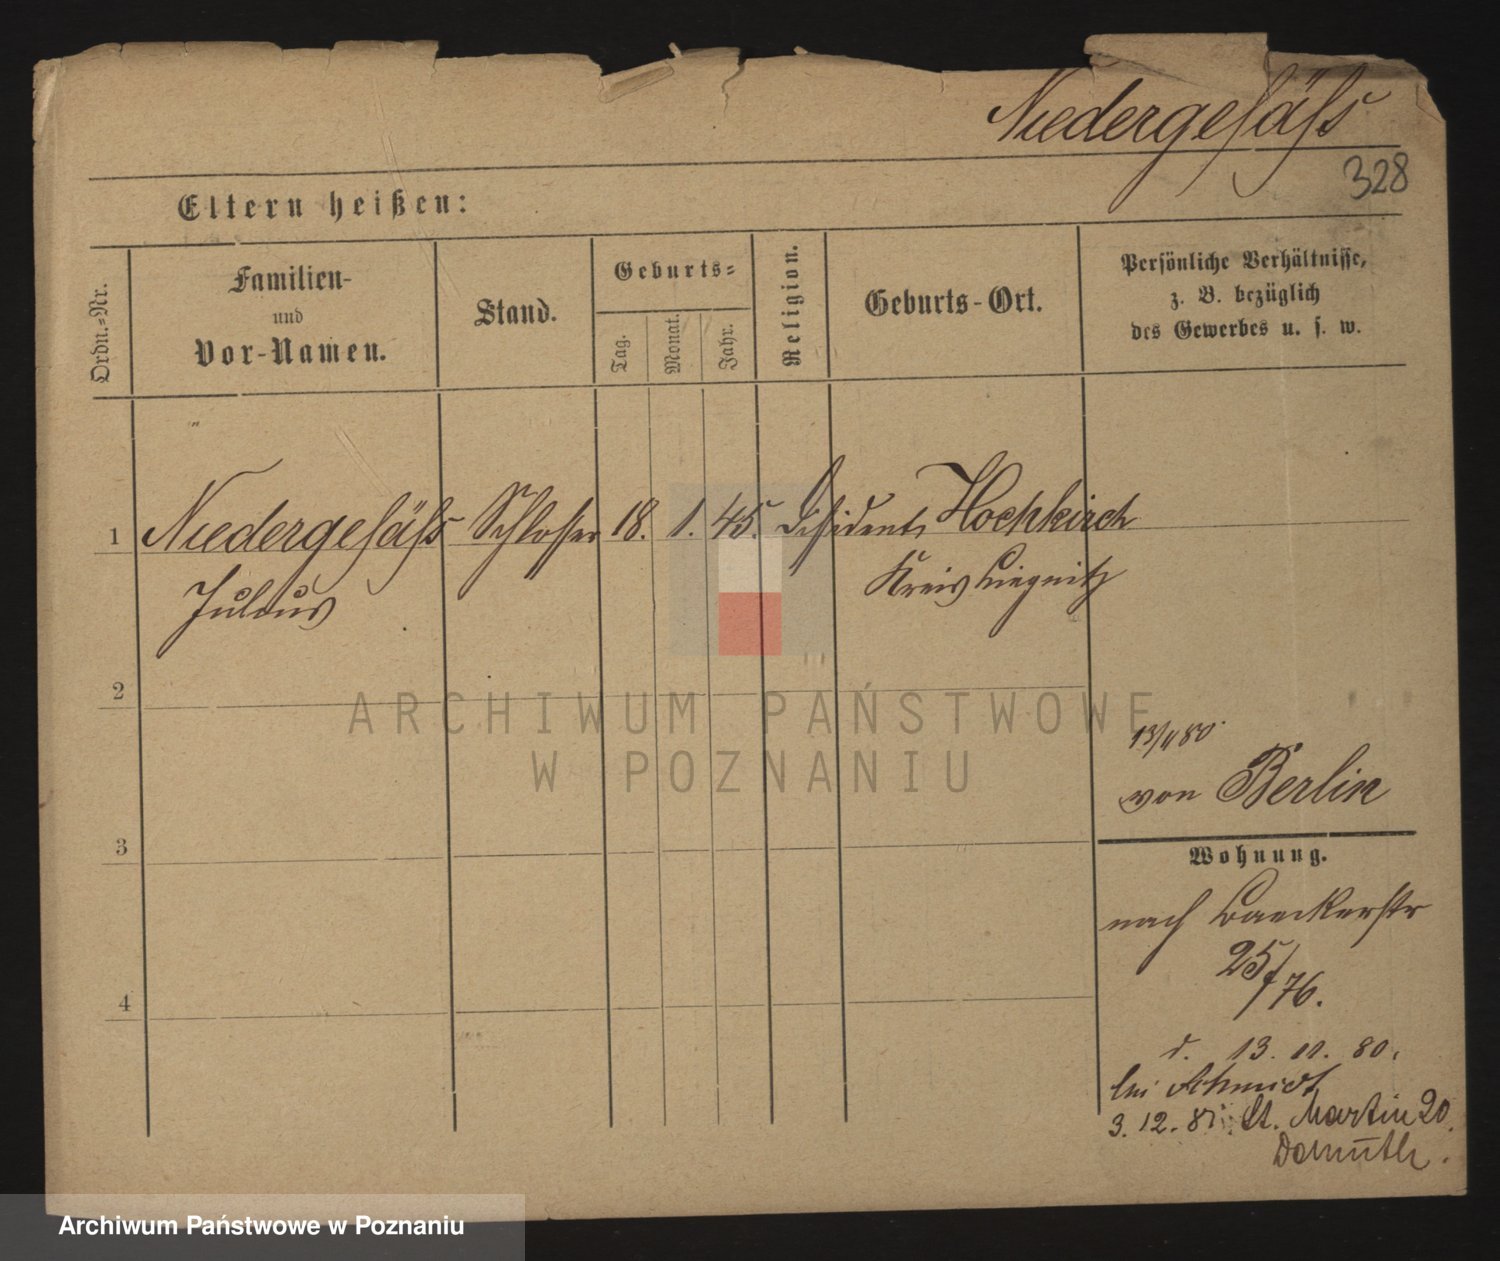 Niedergesäß
328
Eltern heißen:
Ordn.-Nr.
Familien-
und
Vor-Namen.
Stand.
Geburts-
Tag.
Monat.
Jahr.
Religion.
Geburts-Ort.
Persönliche Verhältnisse,
z. B. bezüglich
des Gewerbes u. s. w.
1 Niedergesäß Schlosser 18. 1. 45. Dissident Hochkirch
Julius Kreis Liegnitz
2
ARCHIWUM PAŃSTWOWE
W POZNANIU
13/11 80.
von Berlin
3
Wohnung.
nach Baeckerstr
25/76.
4
d. 13. 11. 80.
bei Schmidt
3. 12. 81 St. Martin 20.
Domuth.
Archiwum Państwowe w Poznaniu